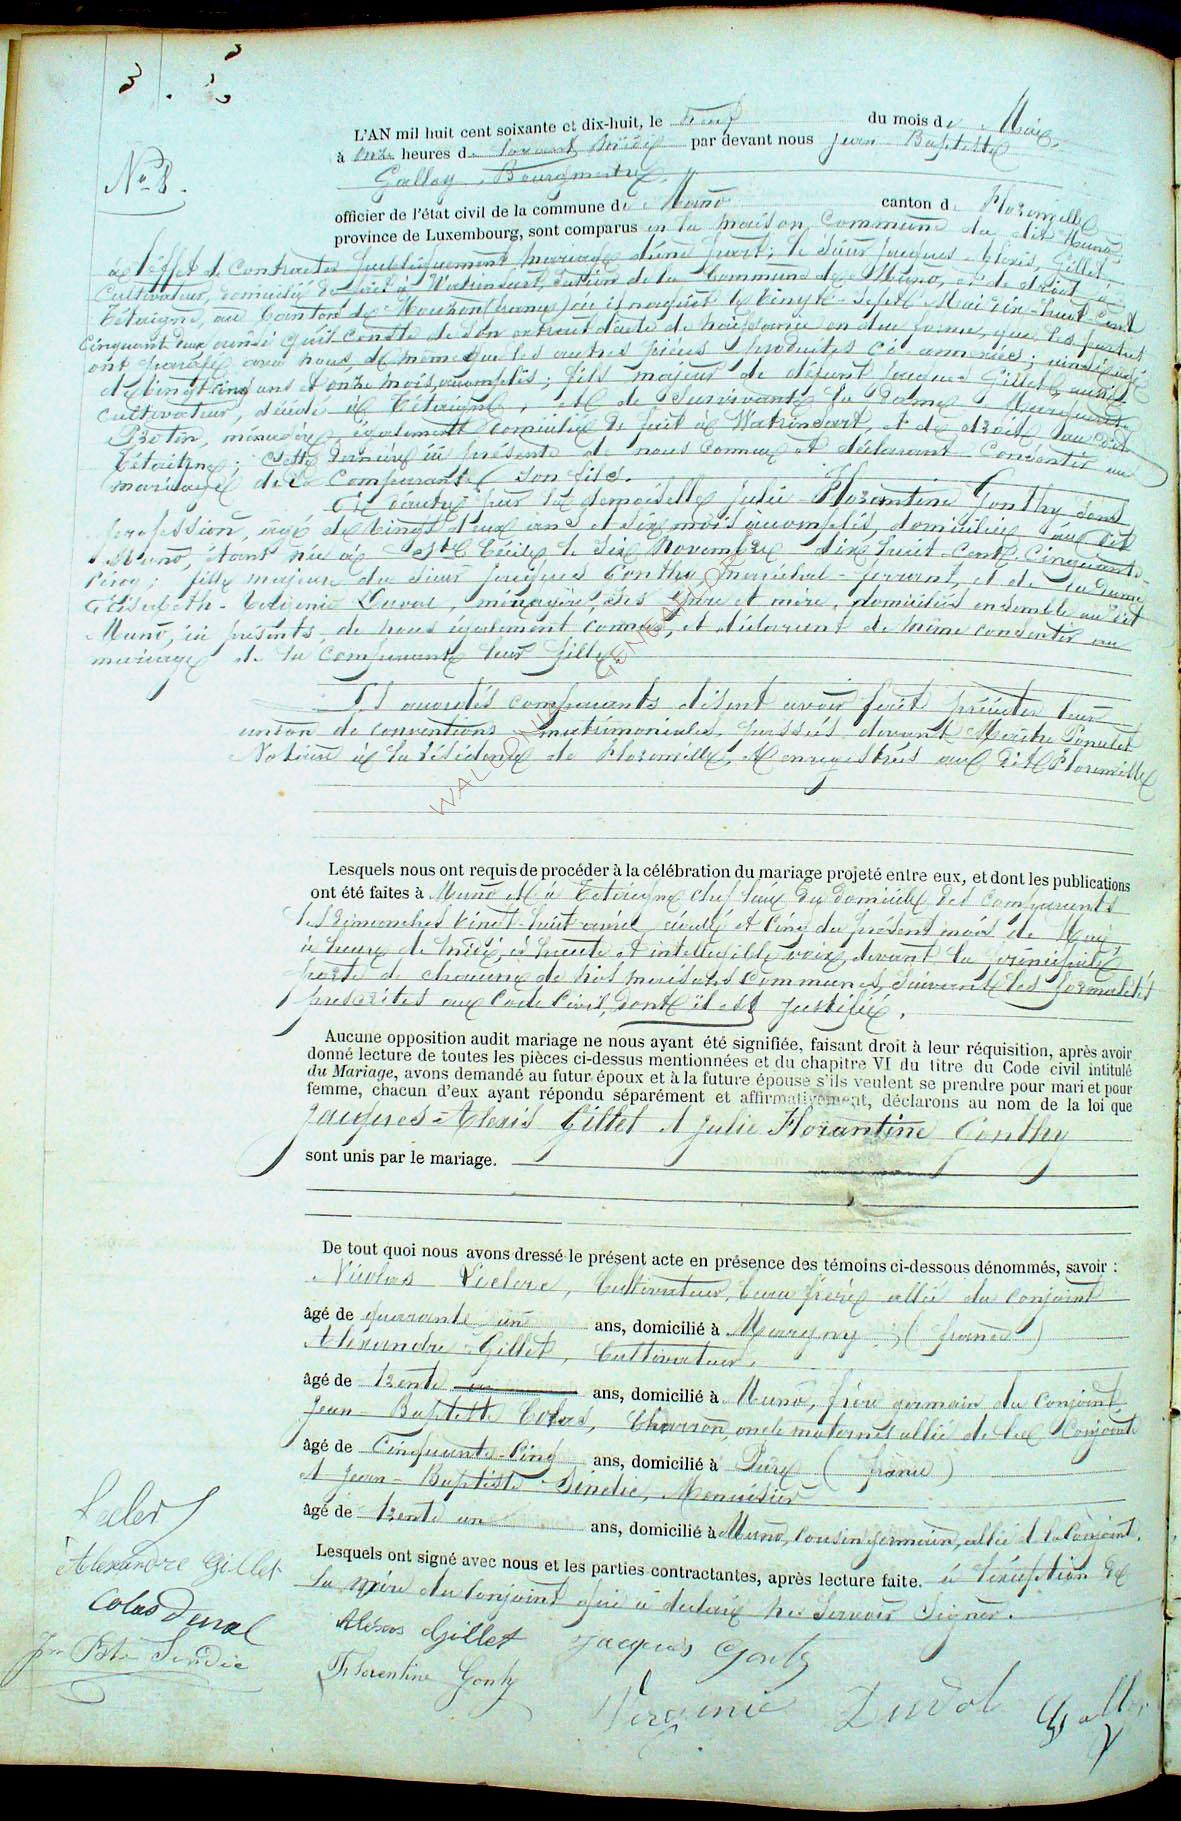 3.
N° 8.
L'AN mil huit cent soixante et dix-huit, le neuf du mois de Mai,
à onze heures d avant Midi par devant nous Jean Baptiste
Galloy, Bourgmestre,
officier de l'état civil de la commune de Muno canton d Florenville
province de Luxembourg, sont comparus en la maison Commune du dit Muno,
à l'effet de contracter publiquement mariage d'une part; le sieur Jacques-Alexis Gillet
Cultivateur, domicilié de fait à Watrinsart, section de la Commune de Muno, et de droit à
Tétaigne, au Canton de Mouzon (france) où il naquit le vingt-sept Mai dix-huit Cent
Cinquant deux ainsi qu'il conste de son extrait d'acte de naissance en due forme, que les parties
ont paraphé avec nous, de même que les autres pièces produites ci-annexées; ainsi âgé
de vingt cinq ans et onze mois accomplis; fils majeur de défunt Jacques Gillet, aussi
cultivateur, décédé à Tétaigne, et de survivante la Dame Marguerite
Protin, ménagère, également domiciliée de fait à Watrinsart, et de droit au dit
Tétaigne; cette dernière ici présente de nous connue et déclarant Consentir au
mariage de Comparant son fils.
Et d'autre part la demoiselle Julie-Florantine Gonthy sans
profession, âgé de vingt deux ans et six mois accomplis, domiciliée au dit
Muno, étant née à Ste Cécile le six Novembre dix huit Cent Cinquante-
cinq; fille majeure du sieur Jacques Gonthy maréchal-ferrant, et de la Dame
Elisabeth-Virginie Duval, ménagère, ses père et mère, domiciliés ensemble au dit
Muno, ici présents, de nous également connus, et déclarant de même consentir au
mariage de la Comparante leur fille.
Les comparants disent avoir fait précéder leur
union de conventions matrimoniales, passées devant Maître
Notaire à la résidence de Florenville, et enregistrées au dit Florenville
WALLONIA GENEALOR
Lesquels nous ont requis de procéder à la célébration du mariage projeté entre eux, et dont les publications
ont été faites à Muno et à Tetaigne chef lieux du domicile des Comparants
les dimanches vingt-huit avril écoulé et cinq du présent mois de Mai
à heure de midi, à haute et intelligible voix, devant la principale
porte de chacune de nos maisons communes, suivant les formalités
prescrites au Code Civil, dont il est justifié.
Aucune opposition audit mariage ne nous ayant été signifiée, faisant droit à leur réquisition, après avoir
donné lecture de toutes les pièces ci-dessus mentionnées et du chapitre VI du titre du Code civil intitulé
du Mariage, avons demandé au futur époux et à la future épouse s'ils veulent se prendre pour mari et pour
femme, chacun d'eux ayant répondu séparément et affirmativement, déclarons au nom de la loi que
Jacques-Alexis Gillet et Julie Florantine Gonthy
sont unis par le mariage.
De tout quoi nous avons dressé le présent acte en présence des témoins ci-dessous dénommés, savoir :
Nicolas Leclerc, Cultivateur, beau frère allié du conjoint
âgé de quarante un ans, domicilié à Margny (france)
Alexandre Gillet, Cultivateur,
âgé de trente ans, domicilié à Muno, frère germain du Conjoint
Jean-Baptiste Colas, Charron, oncle maternel allié de la Conjointe
âgé de Cinquante-Cinq ans, domicilié à Puré (france)
et Jean-Baptiste Sindic, Menuisier
âgé de trente un ans, domicilié à Muno, cousin germain, allié de la conjointe.
Lesquels ont signé avec nous et les parties contractantes, après lecture faite. à l'exception de
la mère du Conjoint qui a déclaré ne savoir signer.
Leclerc
Alexandre Gillet
Colas Duval
Jn Bte Sindic
Alexis Gillet
Jacques Gonty
Florentine Gonty
Virginie Duvol
Galloy